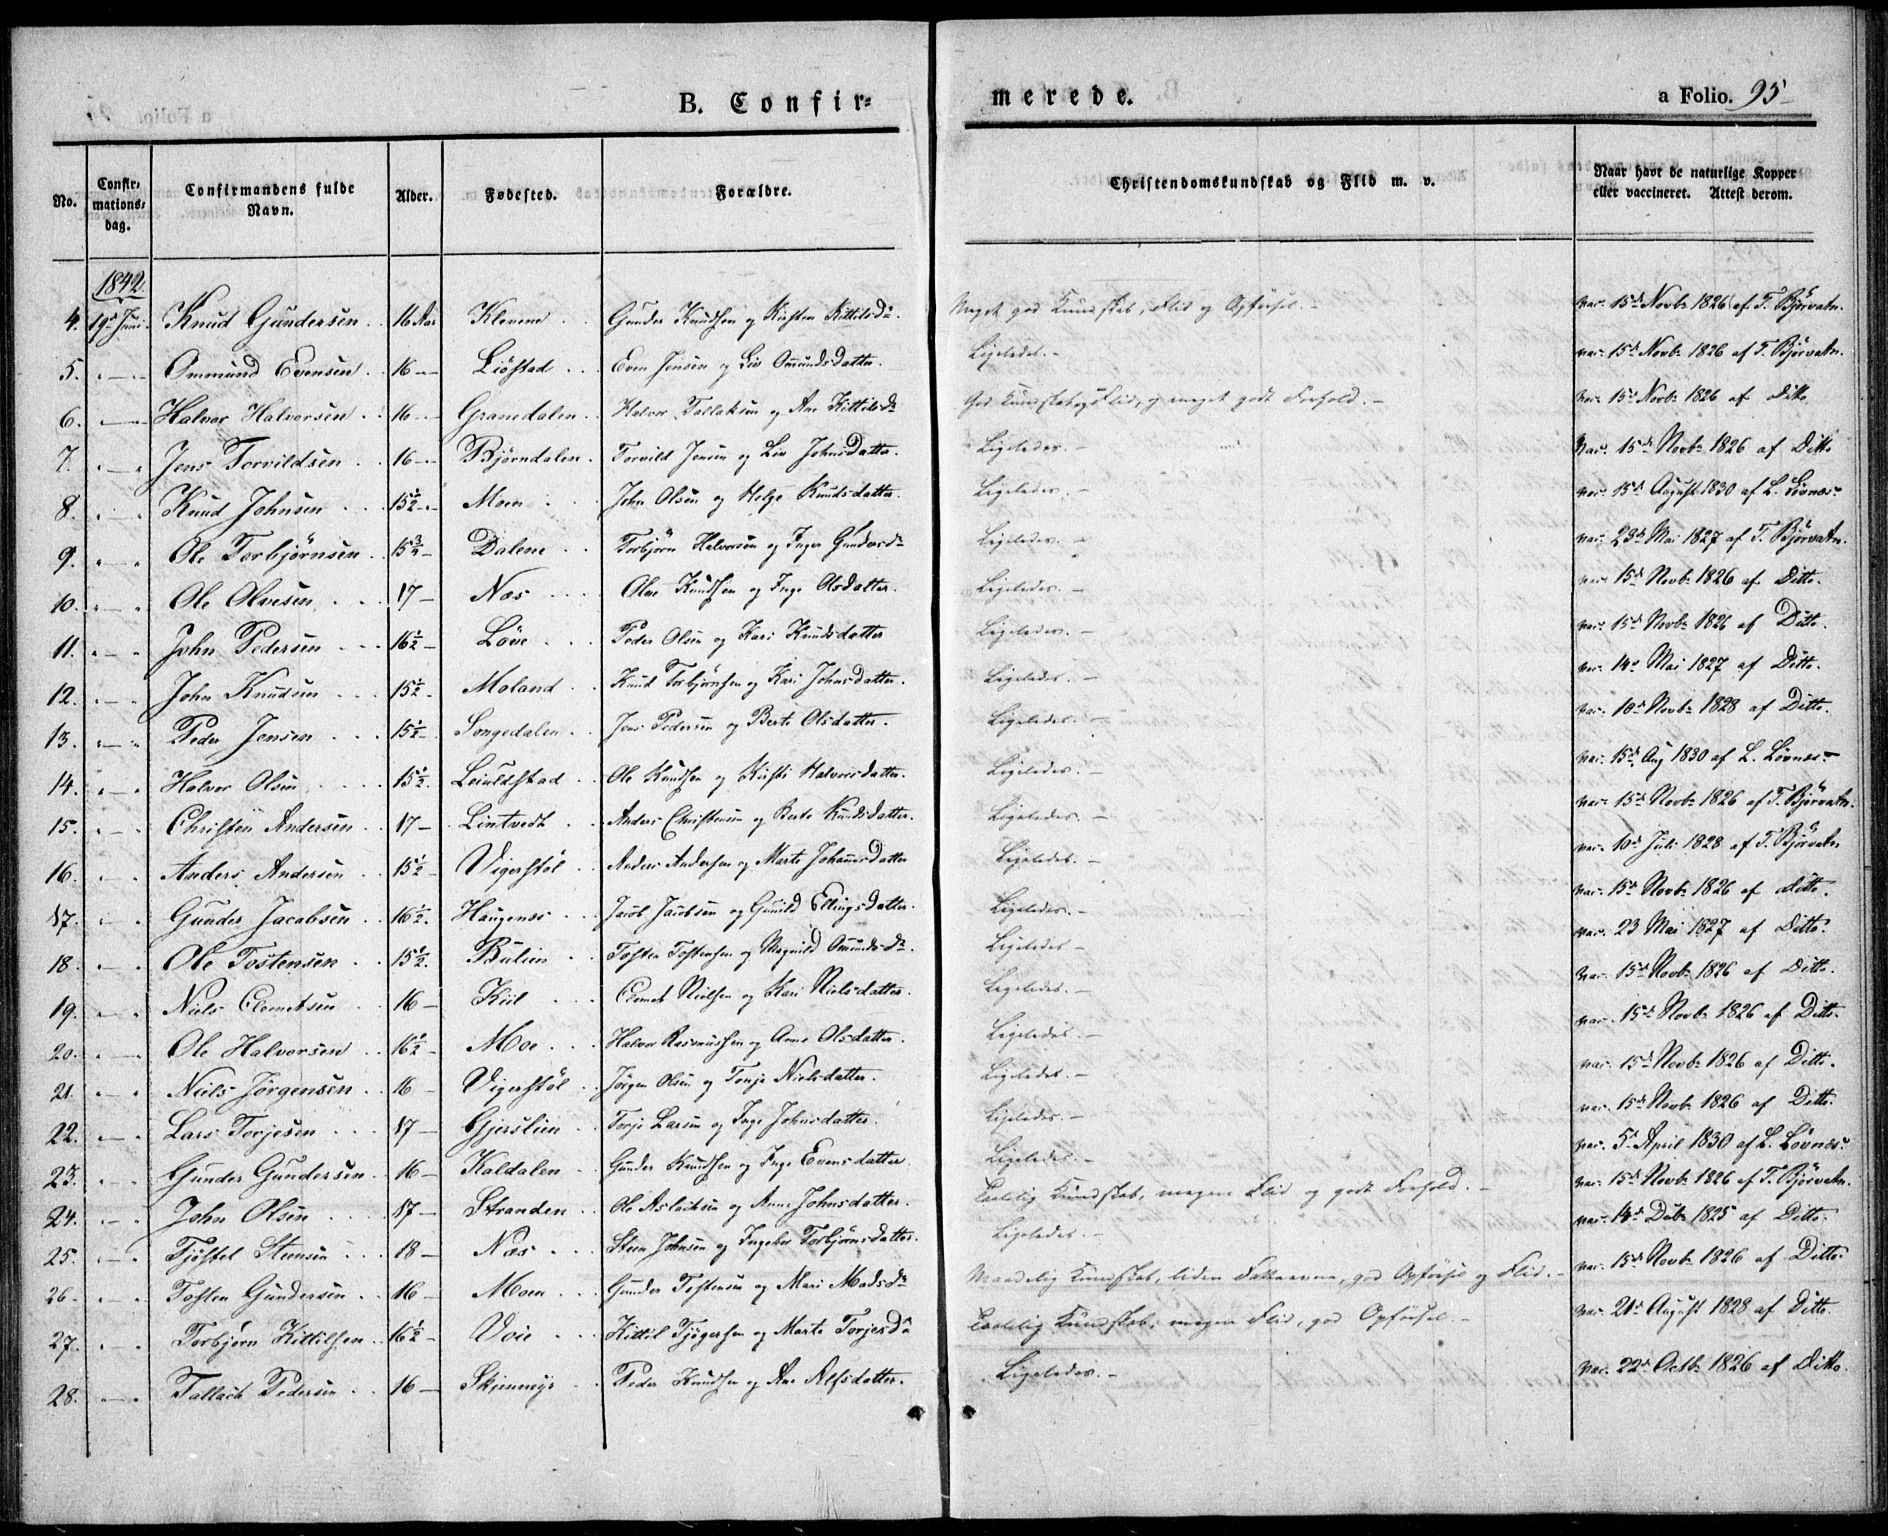 B. Confir= merede. a Folio. 95
No. Confir, mations, dag. Confirmandens fulde Navn. Alder. Fødested. Forældre. Christendomskundskab og Flid m. v. Naar havt de naturlige Kopper eller vaccineret. Attest derom.
1842.
4. 19d Juni Knud Gundersen 16 Aar Klevene Gunder Knudsen og Kirsten Kittilsdr. Meget god Kundskab, Flid og Opførsel.- vac. 15d Novb. 1826 af T. Bjørvatn.
5. Ommund Evensen 16 Liøstad Even Jensen og Liv Omundsdatter. Ligeledes.- vac. 15d Novb. 1826 af T. Bjørvatn.
6. Halvor Halvorsen 16 Granedalen Halvor Tallaksen og Ane Kittilsdr God Kundskab og Flid, og meget godt Forhold.- vac. 15d Novb. 1826 af Ditto
7. Jens Torvildsen 16 Bjørndalen Torvild Jensen og Liv Johnsdatter. Ligeledes.- vac. 15d Novb. 1826 af Ditto
8. Knud Johnsen 15 1/2 Moen John Olsen og Helge Knudsdatter. Ligeledes.- vac. 15d August 1830 af L. Løvnes.
9. Ole Torbjørnsen 15 3/4 Dalene Torbjørn Halvorsen og Inger Gundersdr Ligeledes.- vac. 23d Mai 1827 af T. Bjørvatn.
10. Ole Olvesen 17 Næs Olve Knudsen og Inge Olsdatter. Ligeledes.- vac. 15d Novb. 1826 af Ditto.
11. John Pedersen 16 1/2 Løve Peder Olsen og Kari Knudsdatter Ligeledes.- vac. 15d Novb. 1826 af Ditto.
12. John Knudsen 15 1/2 Moland Knud Torbjørnsen og Kari Johnsdatter. Ligeledes.- vac. 14d Mai 1827 af Ditto.
13. Peder Jensen 15 1/2 Songedalen Jens Pedersen og Berte Olsdatter. Ligeledes.- vac. 10d Novb. 1828 af Ditto.
14. Halvor Olsen 15 1/2 Leiuldstad Ole Knudsen og Kirsti Halvorsdatter. Ligeledes.- vac. 15d Aug 1830 af L. Løvnes.
15. Christen Andersen 17 Lintvedt Anders Christensen og Berte Knudsdatter. Ligeledes.- vac. 15d Novb. 1826 af T. Bjørvatn.
16. Anders Andersen 15 1/2 Vigerstøl Anders Andersen og Marte Johannesdatter Ligeledes.- vac. 10d Juli 1828 af T. Bjørvatn
17. Gunder Jacobsen 16 1/2 Haugenes Jacob Jacobsen og Gunild Ellingsdatter. Ligeledes.- vac. 15d Novb. 1826 af ditto.
18. Ole Tostensen 15 1/2 Bulien Tosten Tostensen og Magnild Omundsdr. Ligeledes.- vac. 23 Mai 1827 af Ditto.
19. Niels Clemetsen 16 Kiil Clemet Nielsen og Kari Nielsdatter. Ligeledes.- vac. 15d Novb. 1826 af Ditto.
20. Ole Halvorsen 16 1/2 Moe Halvor Rasmussen og Anne Olsdatter. Ligeledes.- vac. 15d Novb. 1826 af Ditto.
21. Niels Jørgensen 16 Vigerstøl Jørgen Olsen og Tonje Nielsdatter. Ligeledes.- vac. 15d Novb. 1826 af Ditto.
22. Lars Torjesen 17 Gjerslien Torje Larsen og Inge Johnsdatter. Ligeledes.- vac. 15d Novb. 1826 af Ditto.
23. Gunder Gundersen 16 Kaldalen Gunder Knudsen og Inge Evensdatter Ligeledes.- vac. 5d April 1830 af L. Løvnes.
24. John Olsen 17 Stranden Ole Aslaksen og Anne Johnsdatter. Taalelig Kundskab, megen Flid og godt Forhold.- vac. 15d Novb. 1826 af T. Bjørvatn.
25. Tjøstel Steensen 18 Næs Steen Johnsen og Ingebor Torbjørnsdatter. Ligeledes.- vac. 14d Decb. 1825 af Ditto.
26. Tosten Gundersen 16 Moen Gunder Tostensen og Mari Madsdr Maadelig Kundskab, liden Fatteevne, god Opførsel og Flid.- vac. 15d Novb. 1826 af Ditto
27. Torbjørn Kittilsen 16 1/2 Voie Kittil Tjøgersen og Marte Torjesdr Taalelig Kundskab, megen Flid, god Opførsel.- vac. 21d August 1828 af Ditto.
28. Tallach Pedersen 16 Skjenmyr Peder Knudsen og Ane Alfsdatter. Ligeledes.- vac. 22d Octb. 1826 af Ditto.